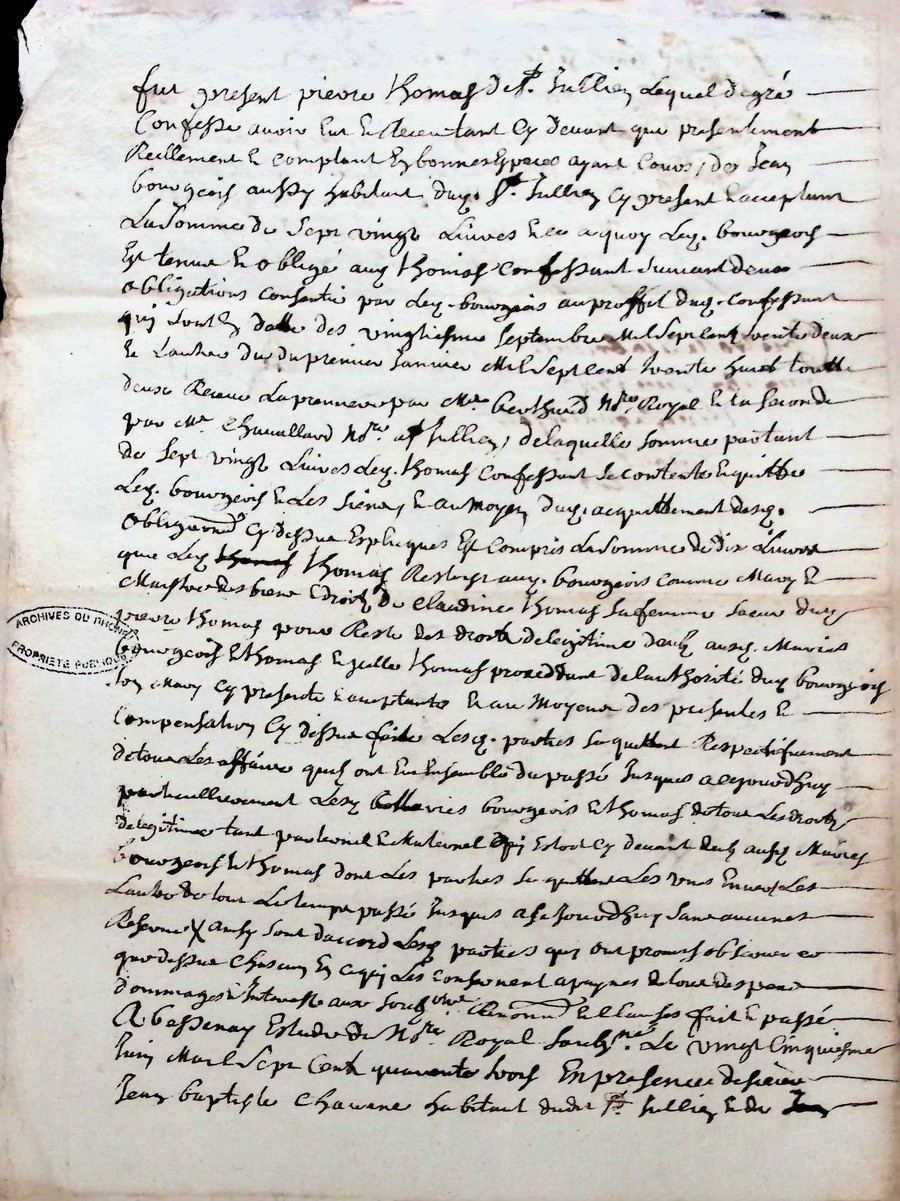 fut present pierre thomas de St. Jullien Lequel de gré
Confesse avoir Eut et Receu tant Cy devant que presentement
Reellement et comptant En bonnes Espaces ayant Cours, de Jean
bourgeois aussy habitant dud. St. Jullien Cy present et acceptant
La Somme de Sept vingt Livres Et ce a quoy Led. bourgeois
Est tenue et obligé aud thomas Confessant Suivant deux
obligations consentie par Led. bourgeois au proffit dud. confessant
qui sont En datte des vingtiesme Septembre Mil Sept cent trente deux
et Lautre du du premier Janvier Mil Sept cent trente huit toutte
deux Receue La premiere par Me. berthierd Nore. Royal et La Seconde
par Me. Chavallard Nore. a St Jullien, de laquelle Somme partant
de Sept vingt Livres Led. thomas Confessant Se contente Et quitte
Led. bourgeois et Les Siens, et au moyen dud. acquittement desd.
obligaons Cy dessue Expliques Est Compris La Somme de dix Livres
que Led thomas thomas Restoyt aud. bourgeois comme Mary et
Maistre des biens Et droits de Claudine thomas Sa femme Soeur dud
pierre thomas pour Reste des droits de legitime deub ausd. Maries
bourgeois Et thomas Laquelle thomas proceddant de lauthorité dud bourgeois
Son Mary Cy presente et acceptante et au Moyens des presentes et
Compensation Cy dessue faite Lesd. parties Se quittent Respectifvement
de tous Les affaire quels ont Eu Ensemble du passé Jusques a cejourdhuy
particullierement Lesd maries bourgeois Et thomas de tous Les droits
de legitime tant paternel et Maternel qui Estoit Cy devant deub ausd Maries
bourgeois Et thomas dont Les parties Se quittent Les uns Envers Les
Lautre de tout Le temps passé Jusques a ce Jourdhuy Sans aucunes
Reserve X ausy Sont daccord Lesd parties qui ont promis observer ce
que dessue Chascun En ce qui Les Consernent a paynes de tous despens
dommages et Interests aux Soubnes. Renonnt Et Clauses fait et passé
A bessenay Estude du Nore Royal Soubné. Le vingt Cinquiesme
Juin Mil Sept Cent quarante trois En presence de sieur
Jean baptiste Chavane habitant dudit St Jullien et de
ARCHIVES DU RHONE
PROPRIETE PUBLIQUE